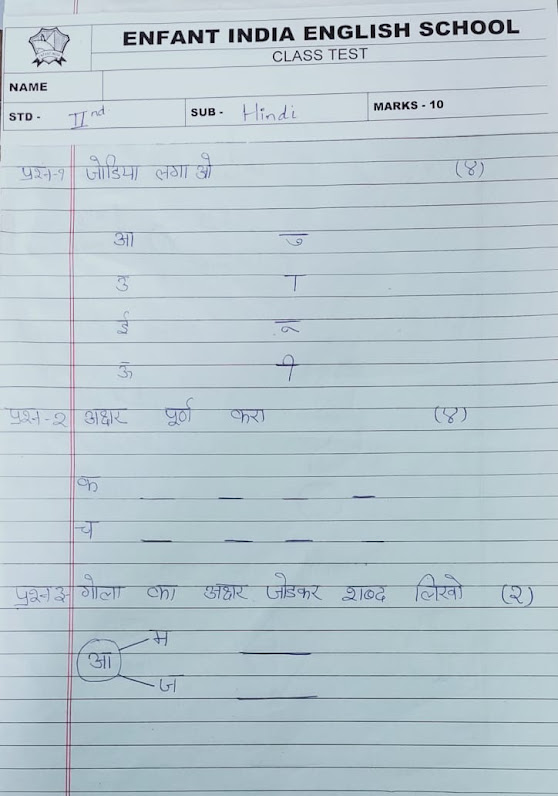 ENFANT INDIA ENGLISH SCHOOL
CLASS TEST
NAME
STD - IInd SUB - Hindi MARKS - 10
प्रश्न-१ जोडिया लगा ओ (४)
आ ु
उ ा
ई ू
ऊ ी
प्रश्न-२ अक्षर पूर्ण करा (४)
क __ __ __ __
च __ __ __ __
प्रश्न ३- गोला का अक्षर जोडकर शब्द लिखो (२)
म ____
आ
ज ____